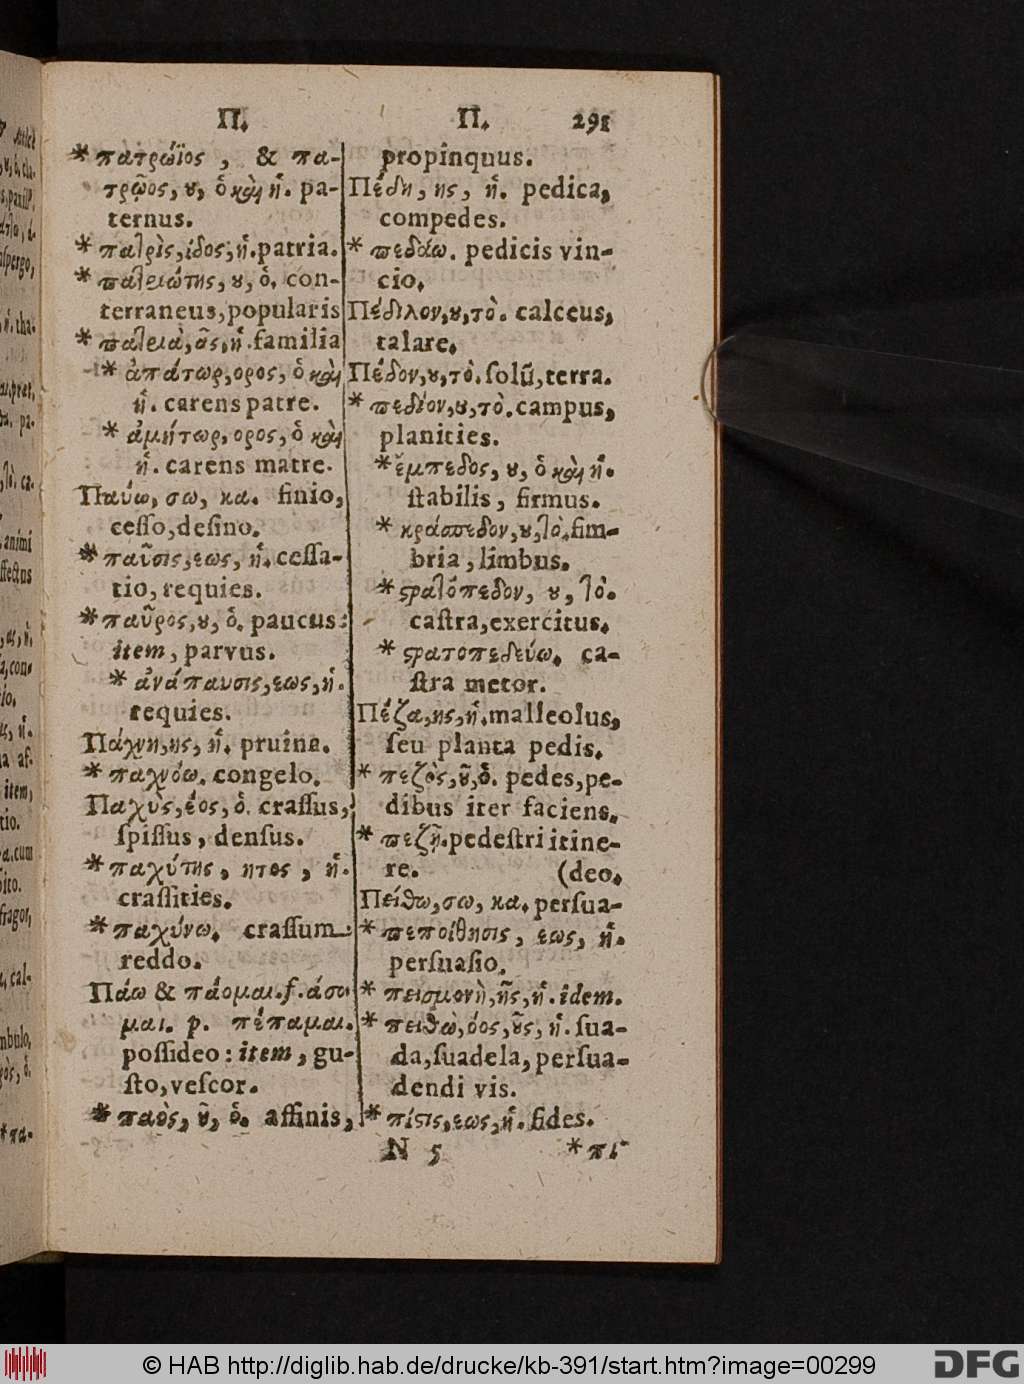 Π. Π. 291
* πατρώϊος, & πα-
τρῷος, ȣ, ὁ καὶ ἡ. pa-
ternus.
* πατρὶς, ίδος, ἡ. patria.
* πατειώτης, ȣ, ὁ. con-
terraneus, popularis
* πατειὰ, ᾶς, ἡ. familia
* ἀπάτωρ, ορος, ὁ καὶ
ἡ. carens patre.
* ἀμήτωρ, ορος, ὁ καὶ
ἡ. carens matre.
Παύω, σω, κα. finio,
ceſſo, deſino.
* παῦσις, εως, ἡ. ceſſa-
tio, requies.
* παῦρος, ȣ, ὁ. paucus:
item, parvus.
* ἀνάπαυσις, εως, ἡ.
requies.
Πάχνη, ης, ἡ. pruina.
* παχνόω. congelo.
Παχὺς, έος, ὁ. craſſus,
ſpiſſus, denſus.
* παχύτης, ητος, ἡ.
craſſities.
* παχύνω. craſſum
reddo.
Πάω & πάομαι. f. άσο
μαι. p. πέπαμαι.
poſſideo: item, gu-
ſto, veſcor.
* παὸς, ȣ͂, ὁ. affinis,
propinquus.
Πέδη, ης, ἡ. pedica,
compedes.
* πεδάω. pedicis vin-
cio.
Πέδιλον, ȣ, τὸ. calceus,
talare.
Πέδον, ȣ, τὸ. ſolũ, terra.
* πεδίον, ȣ, τὸ. campus,
planities.
* ἔμπεδος, ȣ, ὁ καὶ ἡ.
ſtabilis, firmus.
* κράσπεδον, ȣ, τὸ. fim-
bria, limbus.
* ϛρατόπεδον, ȣ, τὸ.
caſtra, exercitus.
* ϛρατοπεδεύω. ca-
ſtra metor.
Πέζα, ης, ἡ. malleolus,
ſeu planta pedis.
* πεζὸς, ȣ͂, ὁ. pedes, pe-
dibus iter faciens.
* πεζῇ. pedeſtri itine-
re. (deo.
Πείθω, σω, κα. perſua-
* πεποίθησις, εως, ἡ.
perſuaſio.
* πεισμονὴ, ῆς, ἡ. idem.
* πειθὼ, όος, ȣ͂ς, ἡ. ſua-
da, ſuadela, perſua-
dendi vis.
* πίϛις, εως, ἡ. fides.
N 5 * πι
© HAB http://diglib.hab.de/drucke/kb-391/start.htm?image=00299
DFG